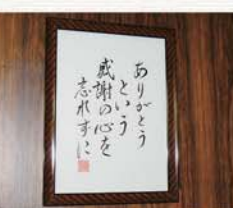 ありがとう
という
感謝の心を
忘れずに